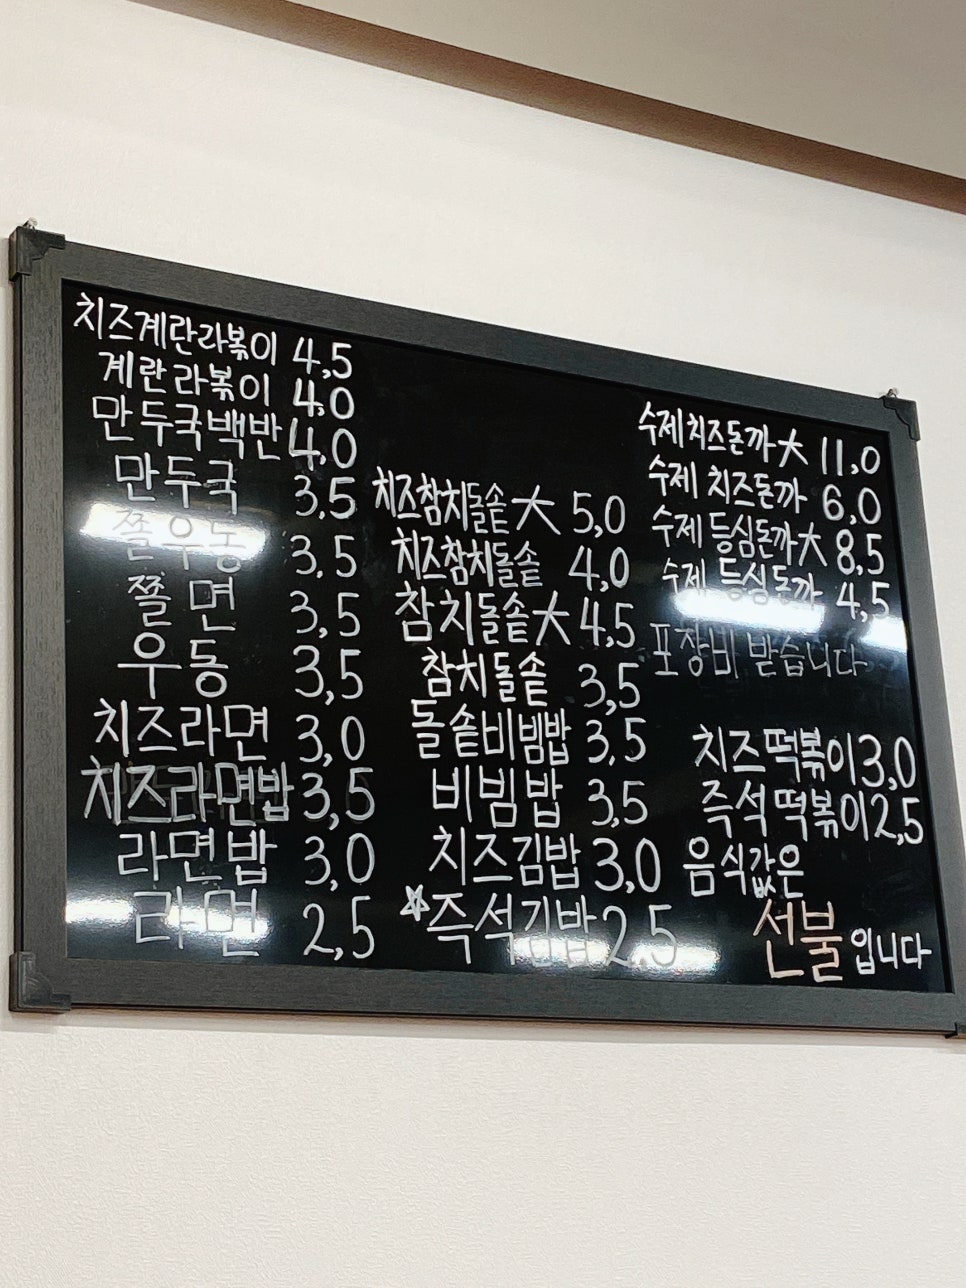 치즈계란라볶이 4,5
계란라볶이 4,0
만두국백반 4,0
만두국 3,5
쫄우동 3,5
쫄면 3,5
우동 3,5
치즈라면 3,0
치즈라면밥 3,5
라면밥 3,0
라면 2,5
치즈참치돌솥大 5,0
치즈참치돌솥 4,0
참치돌솥大 4,5
참치돌솥 3,5
돌솥비빔밥 3,5
비빔밥 3,5
치즈김밥 3,0
☆즉석김밥 2,5
수제치즈돈까大 11,0
수제 치즈돈까 6,0
수제 등심돈까大 8,5
수제 등심돈까 4,5
포장비 받습니다
치즈떡볶이 3,0
즉석떡볶이 2,5
음식값은
선불입니다